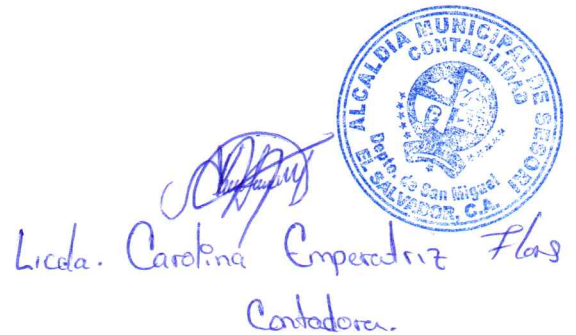 ALCALDIA MUNICIPAL DE SESORI
CONTABILIDAD
Depto. de San Miguel
EL SALVADOR, C.A.
Licda. Carolina Emperatriz Flores
Contadora.